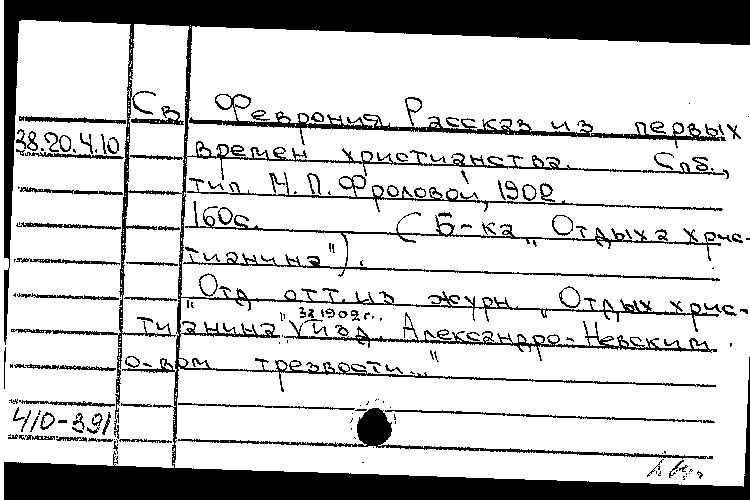 Св Феврония. Рассказ из первых
38.20.4.10 времен христианства. Спб.,
тип. М. П. Фроловой, 1902.
160с. (Б-ка „Отдыха хрис-
тианина").
"Отд. отт. из журн „Отдых хрис-
за 1902г.,
тианина" V изд. Александро-Невским
о-вом трезвости..."
410-391